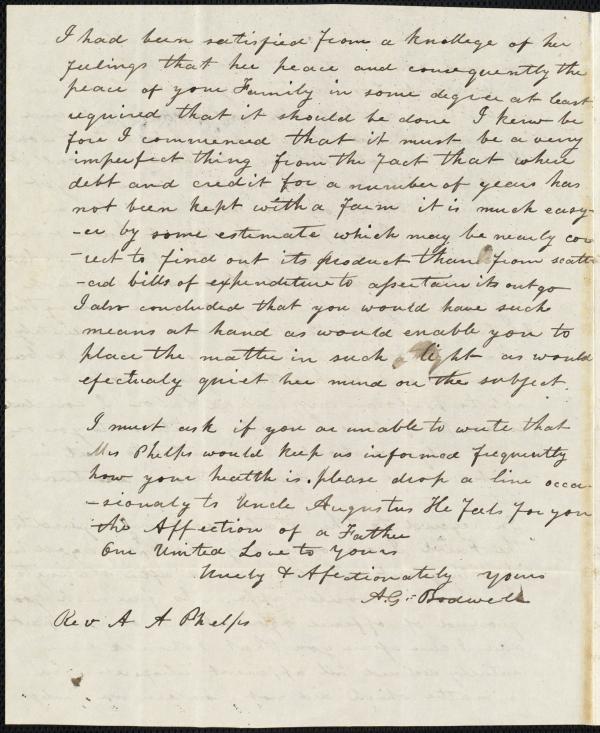 I had been satisfied from a knollege of her
feelings that her peace and consequently the
peace of your Family in some degree at least
required that it should be done I kenw be
fore I commenced that it must be a very
imperfect thing from the fact that where
debt and credit for a number of years has
not been kept with a Farm it is much easy-
-er by some estimate which may be nearly cor
-rect to find out its product than from scatt-
-ed bills of expenditure to assertain its outgo
I also concluded that you would have such
means at hand as would enable you to
place the matter in such a light as would
efectualy quiet her mind on the subject.
I must ask if you are unable to write that
Mrs Phelps would keep us informed frequently
how your health is. please drop a line occa-
-sionaly to Uncle Augustus He feels for you
the Affection of a Father
Our United Love to Yours
Truely & Afectionately yours
A. G. Bodwell
Rev A A Phelps